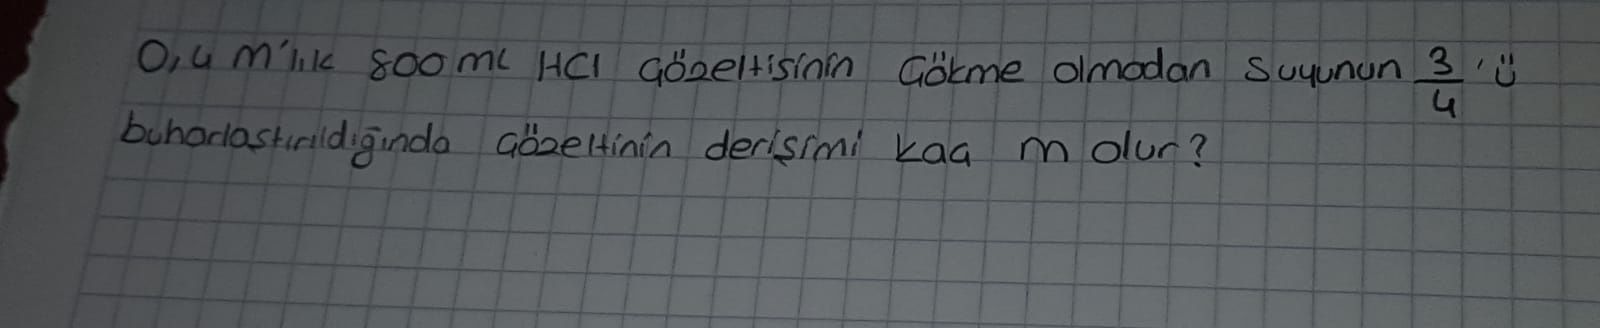 0,4 M'lık 800 mL HCl çözeltisinin çökme olmadan suyunun 3/4 'ü
buharlaştırıldığında çözeltinin derişimi kaç m olur?